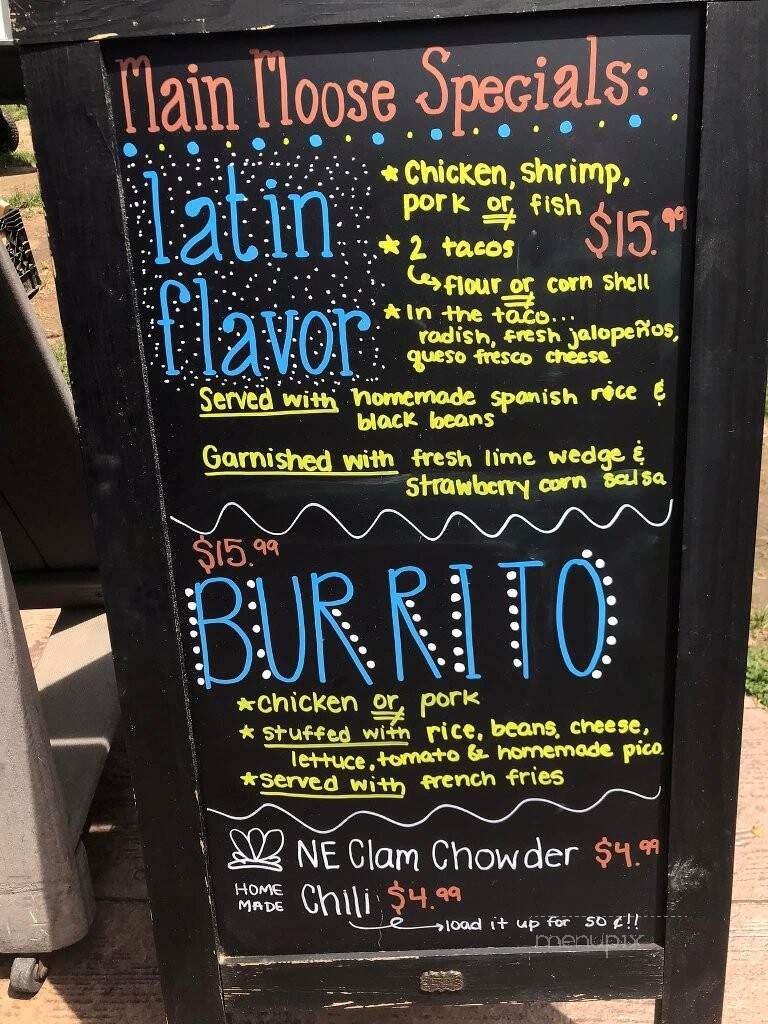 Main Moose Specials:
latin
flavor
* Chicken, shrimp,
pork or fish
$15.99
* 2 tacos
flour or corn shell
* In the taco...
radish, fresh jalopeños,
queso fresco cheese
Served with homemade spanish rice &
black beans
Garnished with fresh lime wedge &
strawberry corn salsa
$15.99
BURRITO
* chicken or pork
* stuffed with rice, beans, cheese,
lettuce, tomato & homemade pico
* served with french fries
NE Clam Chowder $4.99
HOME
MADE
Chili $4.99
load it up for 50¢!!
menupix